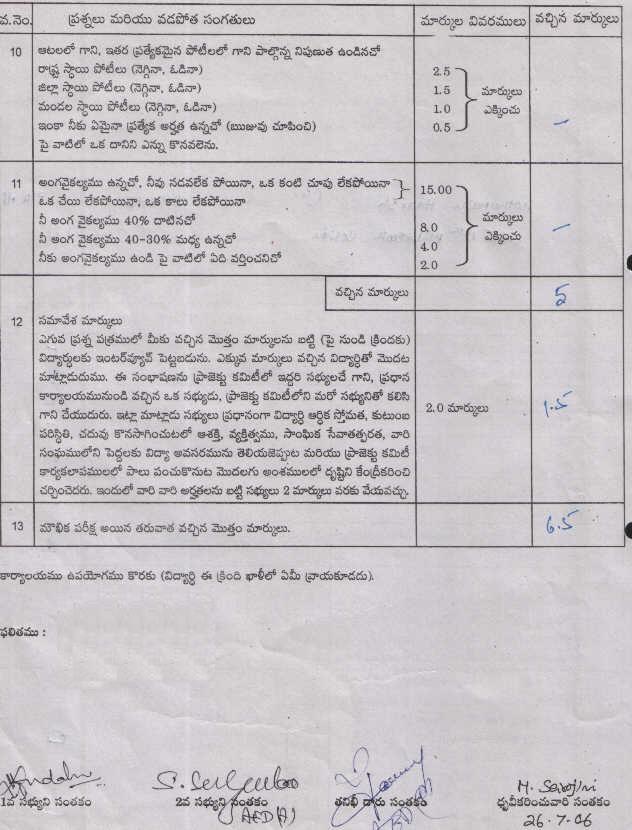 వ.నెం. ప్రశ్నలు మరియు వడపోత సంగతులు మార్కుల వివరములు వచ్చిన మార్కులు
10 ఆటలలో గాని, ఇతర ప్రత్యేకమైన పోటీలలో గాని పాల్గొన్న నిపుణత ఉండినచో
రాష్ట్ర స్థాయి పోటీలు (నెగ్గినా, ఓడినా) 2.5
జిల్లా స్థాయి పోటీలు (నెగ్గినా, ఓడినా) 1.5 మార్కులు
మండల స్థాయి పోటీలు (నెగ్గినా, ఓడినా) 1.0 ఎక్కించు
ఇంకా నీకు ఏమైనా ప్రత్యేక అర్హత ఉన్నచో (ఋజువు చూపించి) 0.5 –
పై వాటిలో ఒక దానిని ఎన్ను కొనవలెను.
11 అంగవైకల్యము ఉన్నచో, నీవు నడవలేక పోయినా, ఒక కంటి చూపు లేకపోయినా 15.00
ఒక చేయి లేకపోయినా, ఒక కాలు లేకపోయినా మార్కులు
నీ అంగ వైకల్యము 40% దాటినచో 8.0 ఎక్కించు –
నీ అంగ వైకల్యము 40-30% మధ్య ఉన్నచో 4.0
నీకు అంగవైకల్యము ఉండి పై వాటిలో ఏది వర్తించనిచో 2.0
వచ్చిన మార్కులు 5
12 సమావేశ మార్కులు
ఎగువ ప్రశ్న పత్రములో మీకు వచ్చిన మొత్తం మార్కులను బట్టి (పై నుండి క్రిందకు)
విద్యార్థులకు ఇంటర్వ్యూవ్ పెట్టబడును. ఎక్కువ మార్కులు వచ్చిన విద్యార్థితో మొదట
మాట్లాడుదుము. ఈ సంభాషణను ప్రాజెక్టు కమిటీలో ఇద్దరి సభ్యులచే గాని, ప్రధాన
కార్యాలయమునుండి వచ్చిన ఒక సభ్యుడు, ప్రాజెక్టు కమిటీలోని మరో సభ్యునితో కలిసి 2.0 మార్కులు 1.5
గాని చేయుదురు. ఇట్లా మాట్లాడు సభ్యులు ప్రధానంగా విద్యార్థి ఆర్థిక స్తోమత, కుటుంబ
పరిస్థితి, చదువు కొనసాగించుటలో ఆశక్తి, వ్యక్తిత్వము, సాంఘిక సేవాతత్పరత, వారి
సంఘములోని పెద్దలకు విద్యా అవసరమును తెలియజెప్పుట మరియు ప్రాజెక్టు కమిటీ
కార్యకలాపములలో పాలు పంచుకొనుట మొదలగు అంశములలో దృష్టిని కేంద్రీకరించి
చర్చించెదరు. ఇందులో వారి వారి అర్హతలను బట్టి సభ్యులు 2 మార్కులు వరకు వేయవచ్చు.
13 మౌఖిక పరీక్ష అయిన తరువాత వచ్చిన మొత్తం మార్కులు. 6.5
కార్యాలయము ఉపయోగము కొరకు (విద్యార్థి ఈ క్రింది ఖాళీలో ఏమీ వ్రాయకూడదు).
ఫలితము :
M. Sarojini
1వ సభ్యుని సంతకం 2వ సభ్యుని సంతకం తనిఖీ దారు సంతకం ధృవీకరించువారి సంతకం
26-7-06